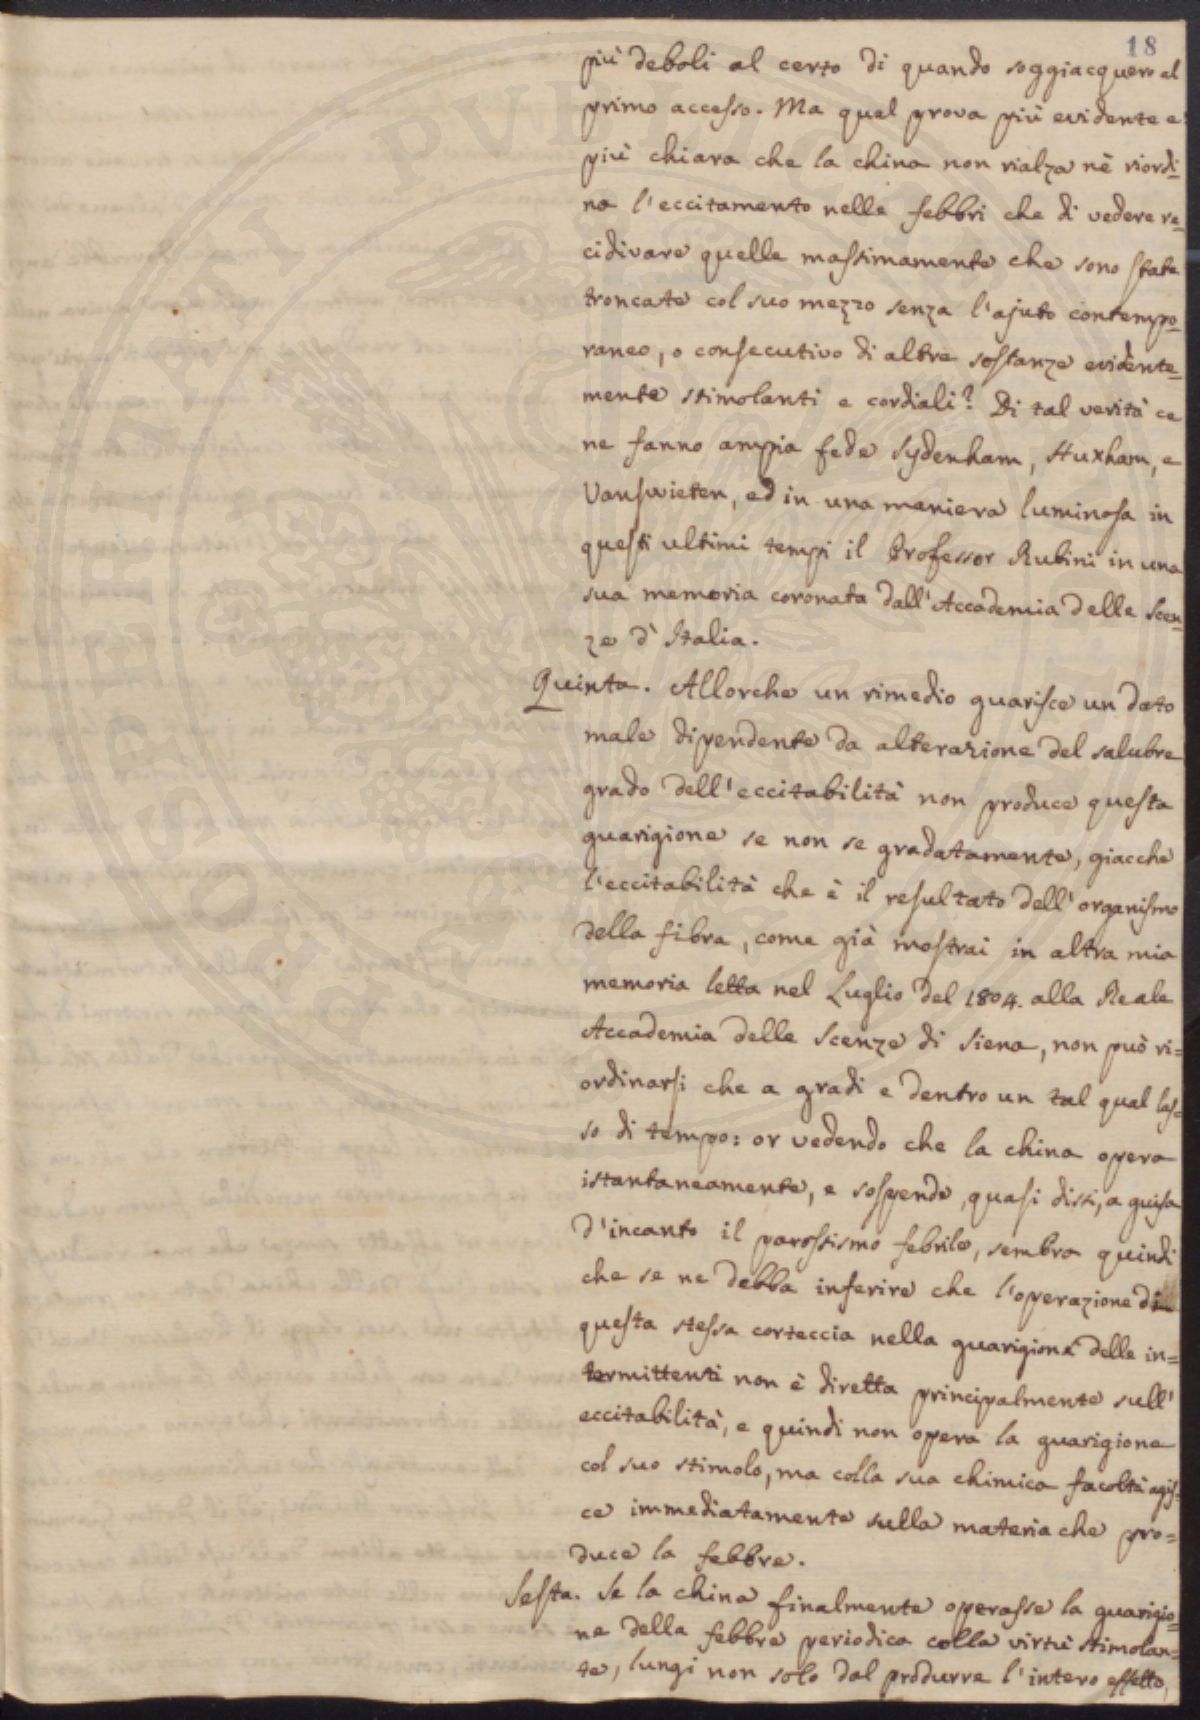 18
più deboli al certo di quando soggiacquero al
primo accesso. Ma qual prova più evidente e
più chiara che la china non rialza nè riordi-
na l'eccitamento nelle febbri che di vedere re-
cidivare quelle massimamente che sono state
troncate col suo mezzo senza l'ajuto contempo-
raneo, o consecutivo di altre sostanze evidente-
mente stimolanti e cordiali? Di tal verità ce
ne fanno ampia fede Sydenham, Huxham, e
Vanswieten, ed in una maniera luminosa in
questi ultimi tempi il Professor Rubini in una
sua memoria coronata dall'Accademia delle Scen-
ze d'Italia.
Quinta. Allorche un rimedio guarisce un dato
male dipendente da alterazione del salubre
grado dell'eccitabilità non produce questa
guarigione se non se gradatamente, giacche
l'eccitabilità che è il resultato dell'organismo
della fibra, come già mostrai in altra mia
memoria letta nel Luglio del 1804. alla Reale
Accademia delle Scenze di Siena, non può ri=
ordinarsi che a gradi e dentro un tal qual las-
so di tempo: or vedendo che la china opera
istantaneamente, e sospende, quasi dissi, a guisa
d'incanto il parossismo febrile, sembra quindi
che se ne debba inferire che l'operazione di
questa stessa corteccia nella guarigione delle in=
termittenti non è diretta principalmente sull'
eccitabilità, e quindi non opera la guarigione
col suo stimolo, ma colla sua chimica facoltà agis-
ce immediatamente sulla materia che pro=
duce la febbre.
Sesta. Se la china finalmente operasse la guarigio-
ne della febbre periodica colla virtù stimolan-
te, lungi non solo dal produrre l'intero effetto,